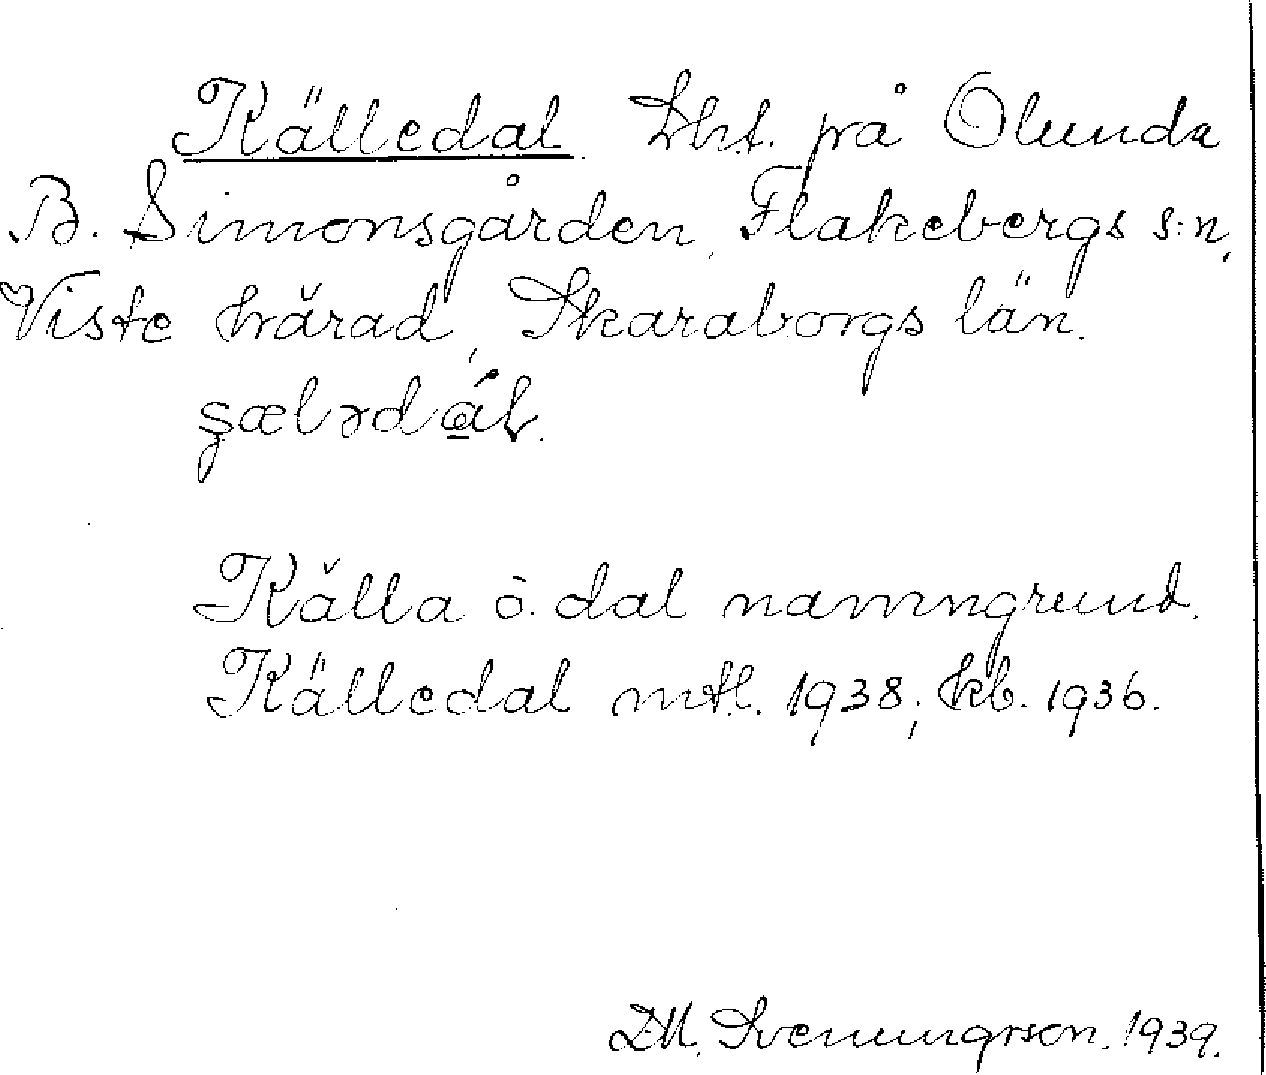 Källedal. Lht. på Olunda
B. Simonsgården, Flakebergs s:n,
Viste härad, Skaraborgs län.

Källa o. dal namngrund.
Källedal mtl. 1938; kb. 1936.
D.M. Svenungsson. 1939.